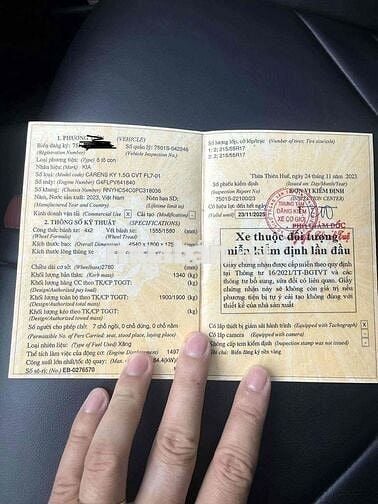 1. PHƯƠNG (VEHICLE)
Biển đăng ký: 75
(Registration Number)
Số quản lý: 7501S-042946
(Vehicle Inspection No.)
Loại phương tiện: (Type) ô tô con
Nhãn hiệu: (Mark) KIA
Số loại: (Model code) CARENS KY 1.5G CVT FL7-01
Số máy: (Engine Number) G4FLPV641840
Số khung: (Chassis Number) RNYHC54C0PC318036
Năm, Nước sản xuất: 2023, Việt Nam
(Manufactured Year and Country)
Niên hạn SD:
(Lifetime limit to)
Kinh doanh vận tải X Cải tạo
(Commercial Use) (Modification)
2. THÔNG SỐ KỸ THUẬT (SPECIFICATIONS)
Công thức bánh xe: 4x2 Vết bánh xe: 1555/1560
(Wheel Formula) (Wheel Tread)
Kích thước bao: (Overall Dimension) 4540 x 1800 x 175
Kích thước lòng thùng xe
Chiều dài cơ sở: (Wheelbase) 2780
Khối lượng bản thân: (Kerb mass) 1340 (kg)
Khối lượng hàng CC theo TK/CP TGGT: (kg)
(Design/Authorized pay load)
Khối lượng toàn bộ theo TK/CP TGGT: 1900/1900 (kg)
(Design/Authorized total mass)
Khối lượng kéo theo TK/CP TGGT: (kg)
(Design/Authorized towed mass)
Số người cho phép chở: 7 chỗ ngồi, 0 chỗ đứng, 0 chỗ nằm
(Permissible No. of Pers Carried: seat, stood place, laying place)
Loại nhiên liệu: (Type of Fuel Used) Xăng
Thể tích làm việc của động cơ: (Engine Displacement) 1497
Công suất lớn nhất/tốc độ quay: (Max.
Số sê-ri: (No.) EB-0276570
Số lượng lốp, cỡ lốp/trục (Number of tires; Tire size/axle)
1: 2; 215/55R17
2: 2; 215/55R17
Thừa Thiên Huế, ngày 24 tháng 11 năm 2023
Số phiếu kiểm định (Issued on: Day/Month/Year)
(Inspection Report No) ĐƠN VỊ KIỂM ĐỊNH
7501S-22100/23
Có hiệu lực đến hết ngày
(Valid until) 23/11/2025
TRUNG TÂM
ĐĂNG KIỂM
XE CƠ GIỚI
PHÓ GIÁM ĐỐC
Xe thuộc đối tượng
miễn kiểm định lần đầu
Giấy chứng nhận được cấp miễn theo quy định
tại Thông tư 16/2021/TT-BGTVT và các
thông tư bổ sung, sửa đổi có liên quan. Giấy
chứng nhận này sẽ không còn giá trị nếu
phương tiện bị tự ý cải tạo không đúng với
thiết kế của nhà sản xuất
Có lắp thiết bị giám sát hành trình (Equipped with Tachograph) X
Có lắp camera (Equipped with camera)
Không cấp tem kiểm định (Inspection stamp was not issued)
Ghi chú: Biển đăng ký nền vàng